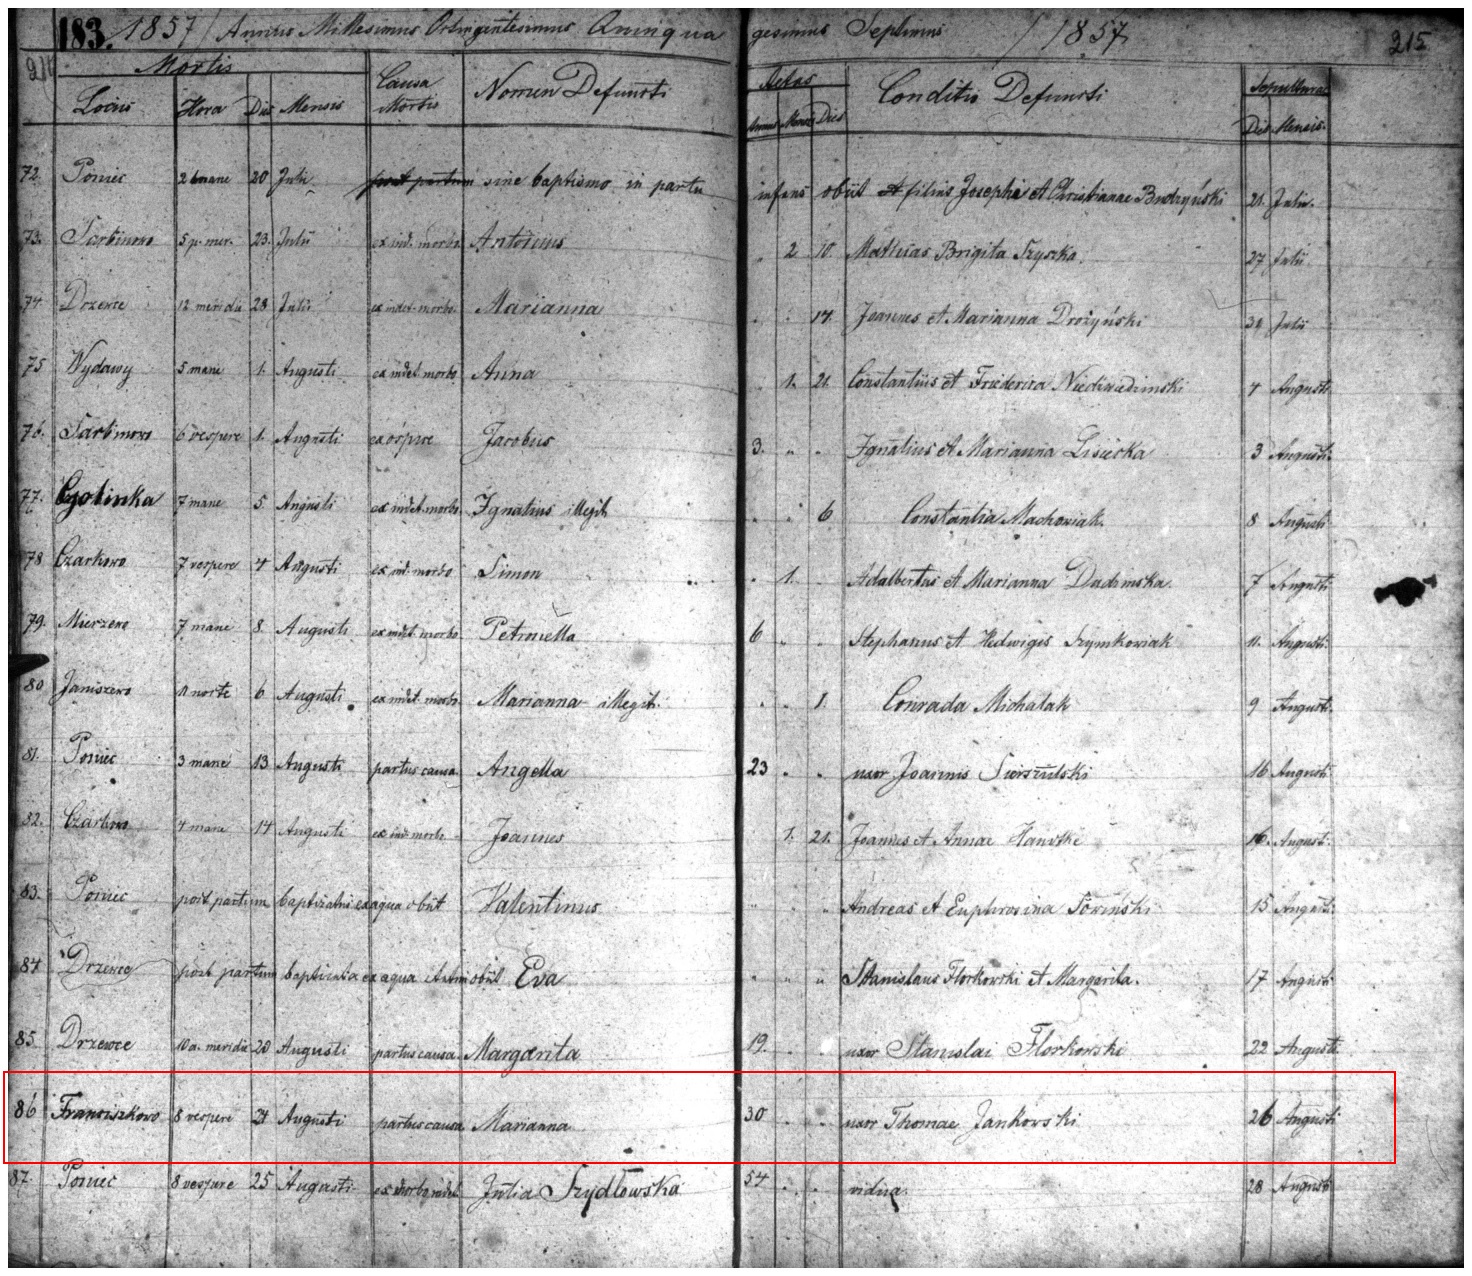 183. 1857 / Annus Millesimus Octingentesimus Quinqua gesimus Septimus / 1857 215
Mortis Causa Mortis Nomen Defuncti Aetas Conditio Defuncti Sepulturae
Locus Hora Dies Mensis Anni Menses Dies Dies Mensis.
72. Poniec 2 mane 20 Julii post partum sine baptismo in partu infans obiit filius Josephi et Christianae Budzyński 21. Julii.
73. Sarbinowo 5 p. mer. 23. Julii ex ind. morbo Antonius " 2 10. Mathias Brigita Szyszka. 27 Julii
74 Drzewce 12 meridie 28 Julii ex indet. morbo. Marianna " " 14. Joannes et Marianna Drożyński 31 Julii
75 Wydawy 5 mane 1. Augusti ex indet. morbo Anna " 1. 21. Constantius et Friederica Niedzwiedzinski 4 Augusti
76. Sarbinowo 6 vespere 1. Augusti Jacobus 3. " " Ignatius et Marianna Lisiecka 3 Augusti.
77. 7 mane 5. Augusti ex indet. morbo. Ignatius illegit. " " 6 Constantia Machowiak. 8 Augusti
78 Czarkowo 7 vespere 4 Augusti ex ind. morbo Simon " 1. " Adalbertus et Marianna 7 Augusti
79. 7 mane 8. Augusti ex indet. morbo Petronella 6 " " Stephanus et Hedwiges Szymkowiak 11. Augusti.
80 Janiszewo 11 nocte 6 Augusti ex indet. morb. Marianna illegit. " " 1. Conrada Michalak 9 Augusti.
81. Poniec 3 mane 13 Augusti partus causa. Angella 23 " " uxor Joannis 16 Augusti
82. Czarkowo 4 mane 14 Augusti ex ind. morb. Joannes " 1. 21. Joannes et Annae 16. Augusti.
83. Poniec post partum baptizatus ex aqua obiit Valentinus " " " Andreas et Euphrosina 15 Augusti
84 Drzewce post partum baptizata ex aqua obiit Eva " " " Stanislaus Florkowski et Margarita. 17 Augusti
85 Drzewce 10 a. meridie 20 Augusti partus causa. Margarita 19. " " uxor Stanislai Florkowski 22 Augusti
86 Franciszkowo 8 vespere 24 Augusti partus causa Marianna 30 " " uxor Thomae Jankowski 26 Augusti
87. Poniec 8 vespere 25 Augusti ex morbo indet Julia Szydłowska 54 " " vidua. 28 Augusti